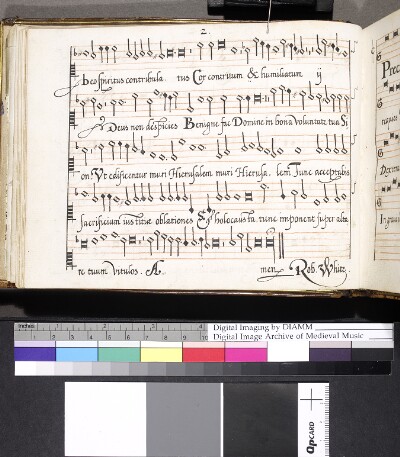 2
beo spiritus contribula tus Cor contritum & humiliatum ij
Deus non despicies Benigne fac Domine in bona voluntate tua Si
on Vt edificentur muri Hierusalem muri Hierusa. lem Tunc acceptabis
sacrificium iustitiae oblationes & holocausta tunc imponent super alta
re tuum Vitulos. A. men Rob. Whitt.
Prec
Inches 1 2 3 4
Digital Imaging by DIAMM
Digital Image Archive of Medieval Music
QPCARD